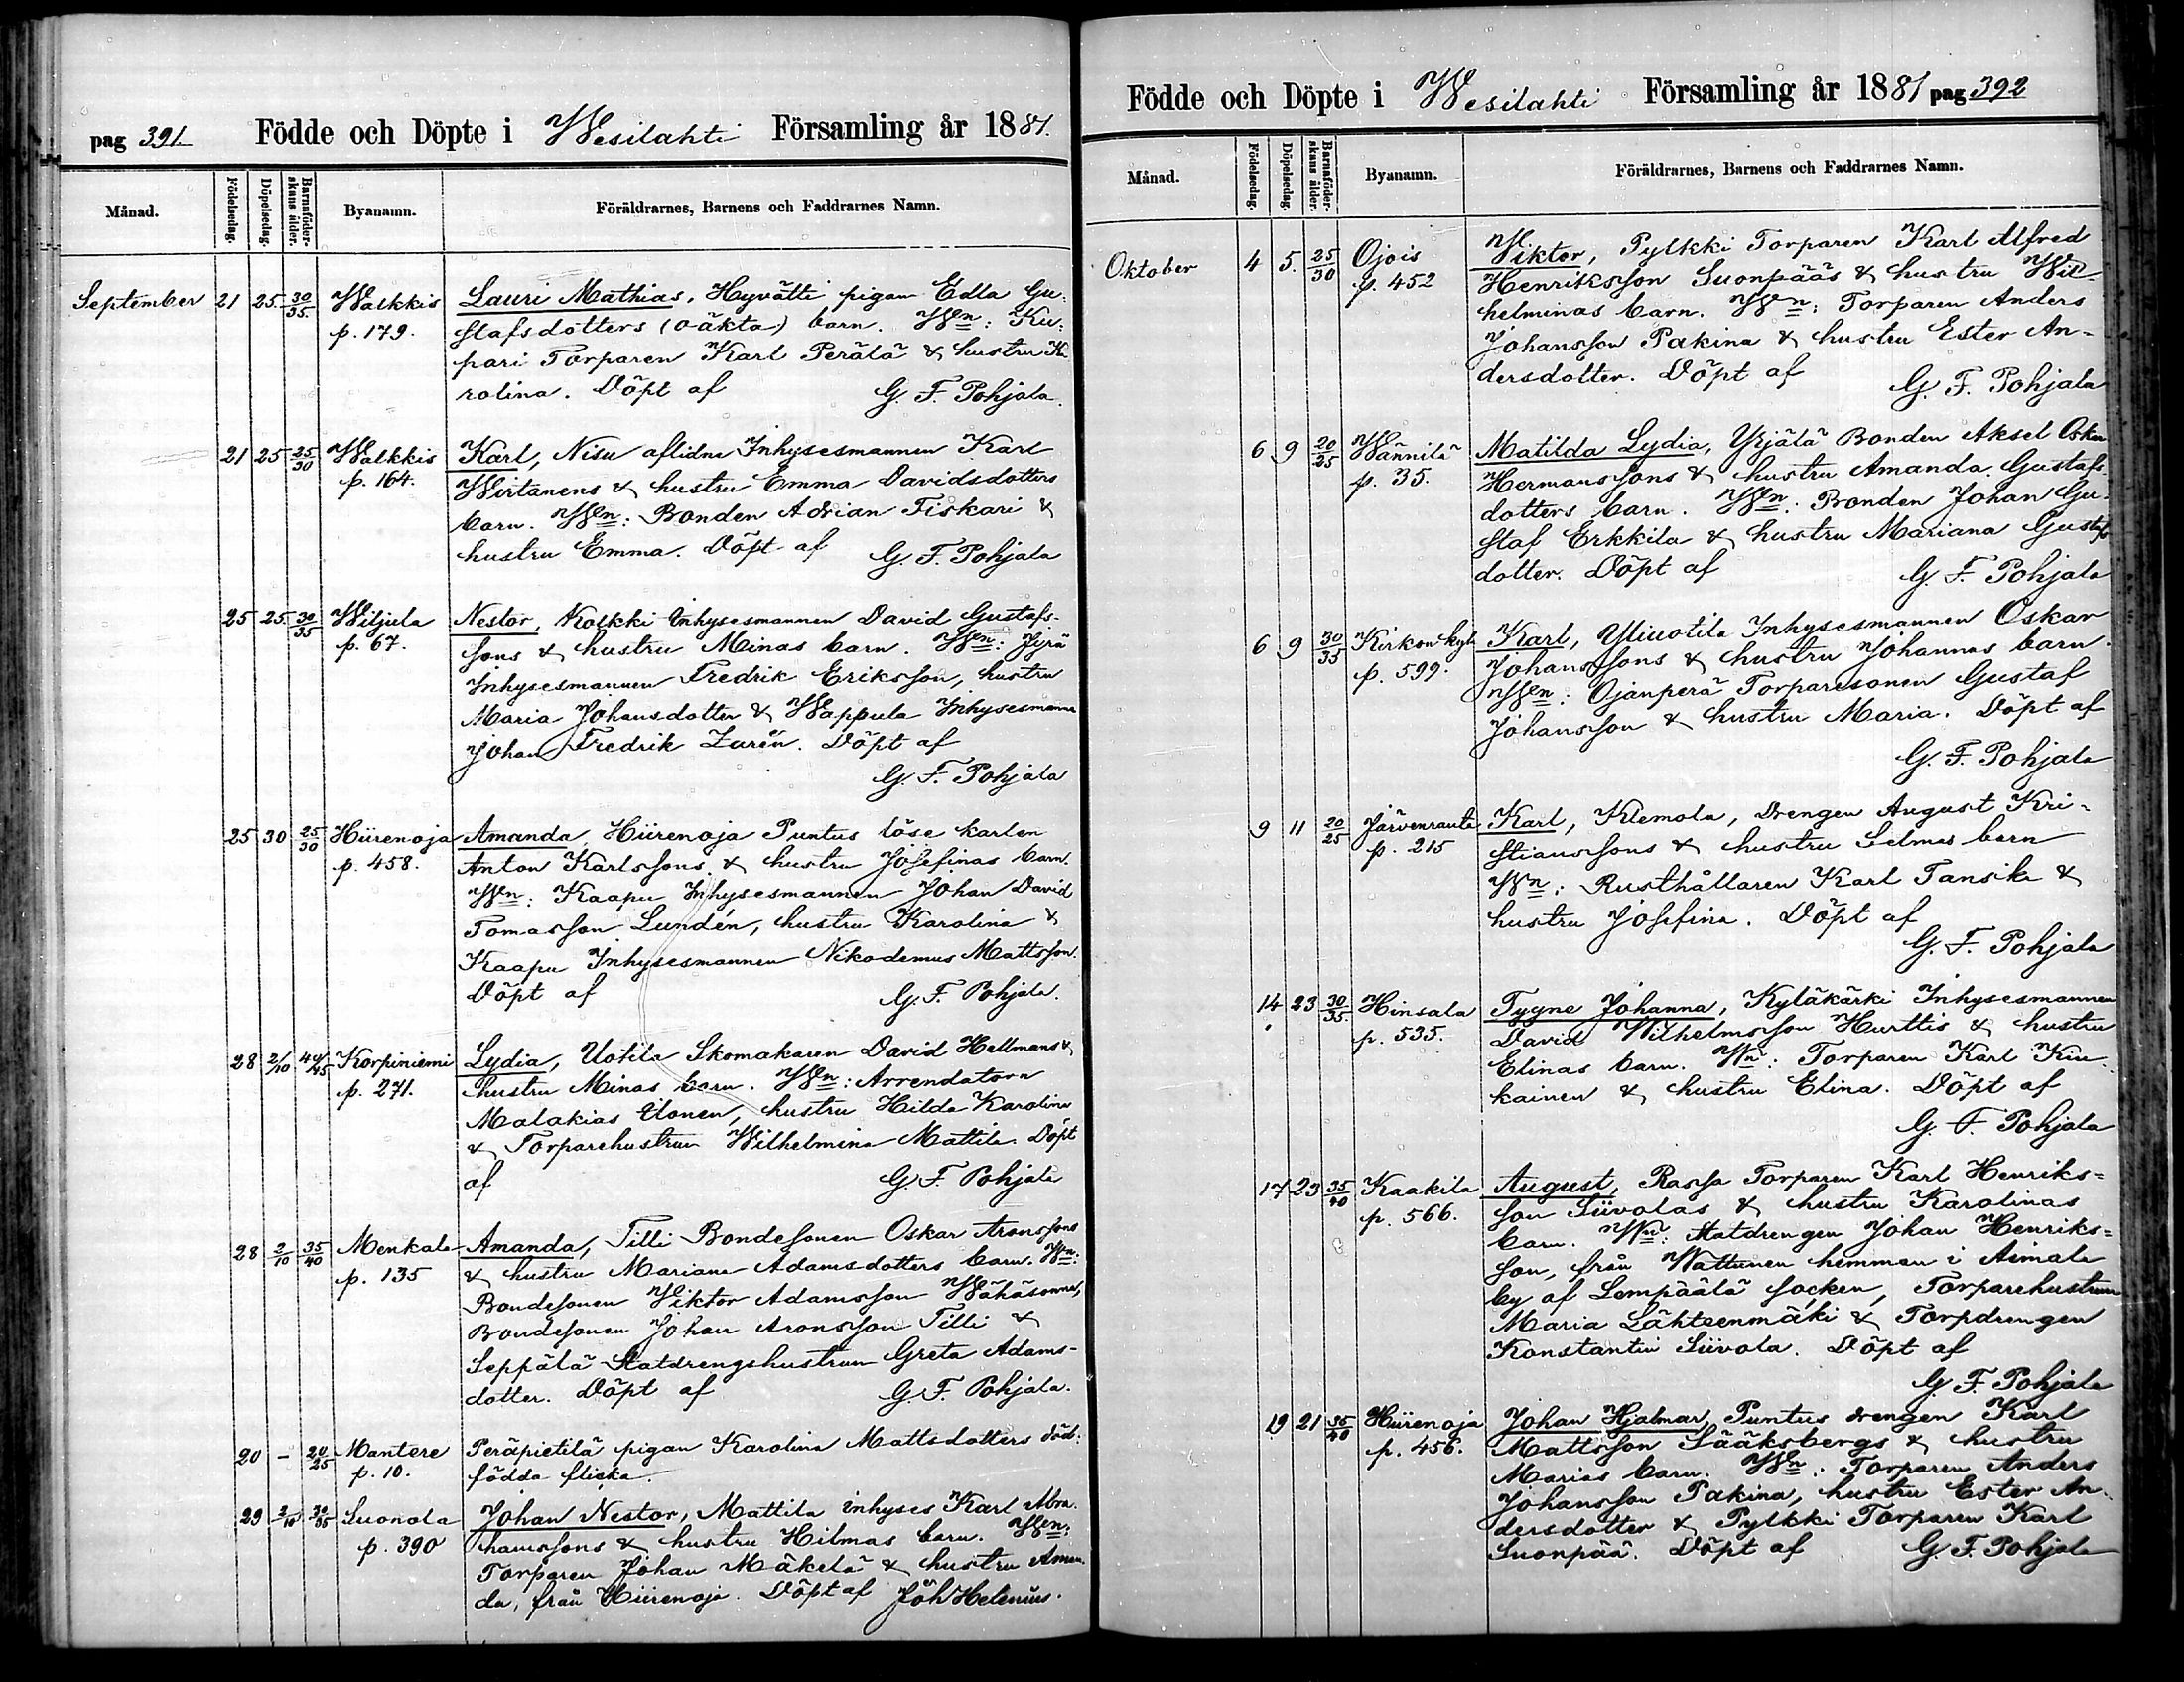 pag 391. Födde och Döpte i Wesilahti Församling år 1881.
Månad. Födelsedag. Döpelsedag. Barnaföderskans ålder. Byanamn. Föräldrarnes, Barnens och Faddrarnes Namn.
September 21 25. 30/35 Walkkis Lauri Mathias, Hyvätti pigan Edla Gu-
p. 179. stafsdotters (oäkta) barn. Wn: Ku-
pari Torparen Karl Perälä & hustru Ka
rolina. Döpt af G. F. Pohjala.
21 25 25/30 Walkkis Karl, Nisu aflidne Inhysesmannen Karl
p. 164. Wirtanens & hustru Emma Davidsdotters
barn. Wn: Bonden Adrian Fiskari &
hustru Emma. Döpt af G. F. Pohjala
25 25. 30/35 Wiljula Nestor, Kolkki Inhysesmannen David Gustafs-
p. 67. sons & hustru Minas barn. Wn: Jyrä
Inhysesmannen Fredrik Eriksson, hustru
Maria Johansdotter & Wappula Inhysesmannen
Johan Fredrik Zurén. Döpt af
G. F. Pohjala
25 30 25/30 Hiirenoja Amanda, Hiirenoja Puntus löse karlen
p. 458. Anton Karlssons & hustru Josefinas barn.
Wn: Kaapu Inhysesmannen Johan David
Tomasson Lundén, hustru Karolina &
Kaapu Inhysesmannen Nikodemus Mattsson.
Döpt af G. F. Pohjala.
28 2/10 40/45 Korpiniemi Lydia, Uotila Skomakaren David Hellmans &
p. 271. hustru Minas barn. Wn: Arrendatorn
Malakias Ilonen, hustru Hilda Karolina
& Torparehustrun Wilhelmina Mattila. Döpt
af G. F. Pohjala
28 2/10 35/40 Menkala Amanda, Tilli Bondesonen Oskar Aronssons
p. 135 & hustru Mariana Adamsdotters barn. Wn:
Bondesonen Viktor Adamsson Wähäsonned,
Bondesonen Johan Aronsson Tilli &
Seppälä Statdrengshustrun Greta Adams-
dotter. Döpt af G. F. Pohjala.
20 - 20/25 Mantere Peräpietilä pigan Karolina Mattsdotters död-
p. 10. födda flicka.
29 2/10 30/35 Suonola Johan Nestor, Mattila inhyses Karl Abra-
p. 390 hamssons & hustru Hilmas barn. Wn:
Torparen Johan Mäkelä & hustru Aman-
da, från Hiirenoja. Döpt af Joh Helenius.
Födde och Döpte i Wesilahti Församling år 1881 pag 392
Månad. Födelsedag. Döpelsedag. Barnaföderskans ålder. Byanamn. Föräldrarnes, Barnens och Faddrarnes Namn.
Oktober 4 5. 25/30 Ojois Viktor, Pylkki Torparen Karl Alfred
p. 452 Henriksson Suonpääs & hustru Wil-
helminas barn. Wn: Torparen Anders
Johansson Pakina & hustru Ester An-
dersdotter. Döpt af G. F. Pohjala
6 9 20/25 Wännilä Matilda Lydia, Yrjälä Bonden Aksel Oskar
p. 35. Hermanssons & hustru Amanda Gustafs-
dotters barn. Wn: Bonden Johan Gu-
staf Erkkila & hustru Mariana Gustafs
dotter. Döpt af G. F. Pohjala
6 9 30/35 Kirkonkylä Karl, Yliuotila Inhysesmannen Oskar
p. 599. Johanssons & hustru Johannas barn.
Wn: Ojanperä Torparesonen Gustaf
Johansson & hustru Maria. Döpt af
G. F. Pohjala
9 11 20/25 Järvenranta Karl, Klemola, Drengen August Kri-
p. 215 stianssons & hustru Selmas barn
Wn: Rusthållaren Karl Tansika &
hustru Josefina. Döpt af
G. F. Pohjala
14 23 30/35. Hinsala Tygne Johanna, Kyläkärki Inhysesmannen
p. 535. David Wilhelmsson Hurttis & hustru
Elinas barn. Wn: Torparen Karl Kiu-
kainen & hustru Elina. Döpt af
G. F. Pohjala
17 23 35/40 Kaakila August, Rassa Torparen Karl Henriks-
p. 566. son Siivolas & hustru Karolinas
barn. Wn: Statdrengen Johan Henriks-
son, från Wattunen hemman i Aimala
by af Lempäälä socken, Torparehustrun
Maria Lähteenmäki & Torpdrengen
Konstantin Siivola. Döpt af
G. F. Pohjala
19 21 35/40 Hiirenoja Johan Hjalmar, Puntus drengen Karl
p. 456. Mattsson Sääksbergs & hustru
Marias barn. Wn: Torparen Anders
Johansson Pakina, hustru Ester An-
dersdotter & Pylkki Torparen Karl
Suonpää. Döpt af G. F. Pohjala